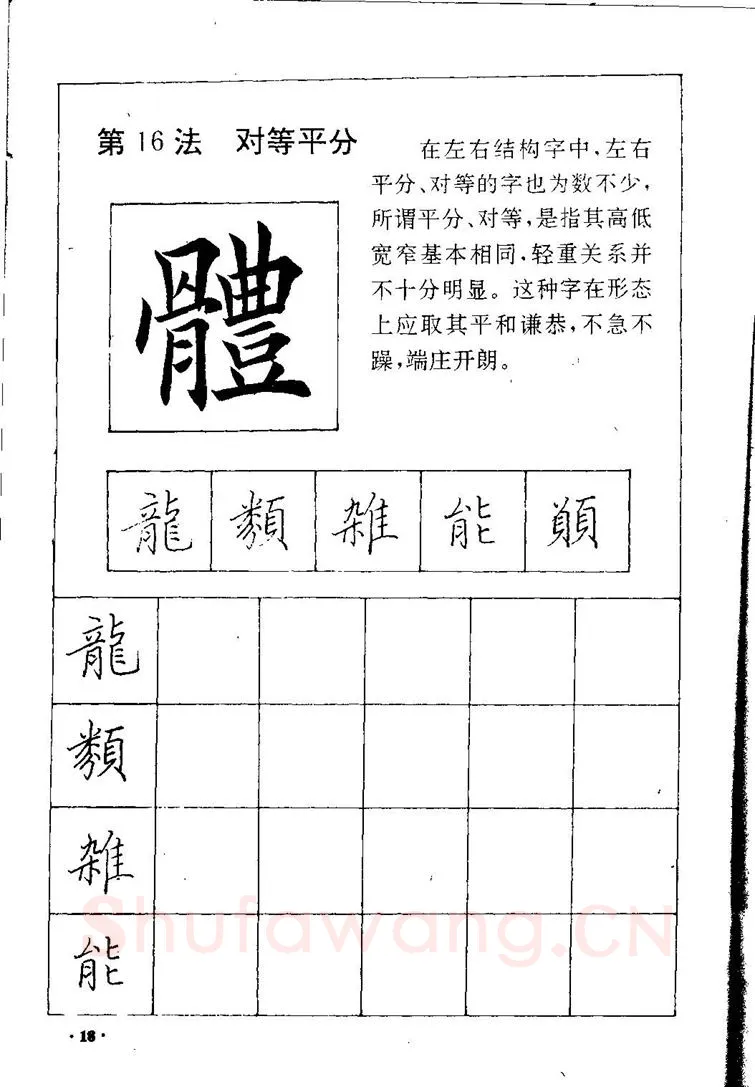 第16法 对等平分
在左右结构字中,左右
平分、对等的字也为数不少,
所谓平分、对等,是指其高低
宽窄基本相同,轻重关系并
不十分明显。这种字在形态
上应取其平和谦恭,不急不
躁,端庄开朗。
體
龍 類 雑 能 順
龍
類
雑
能
Shufawang.CN
·18·